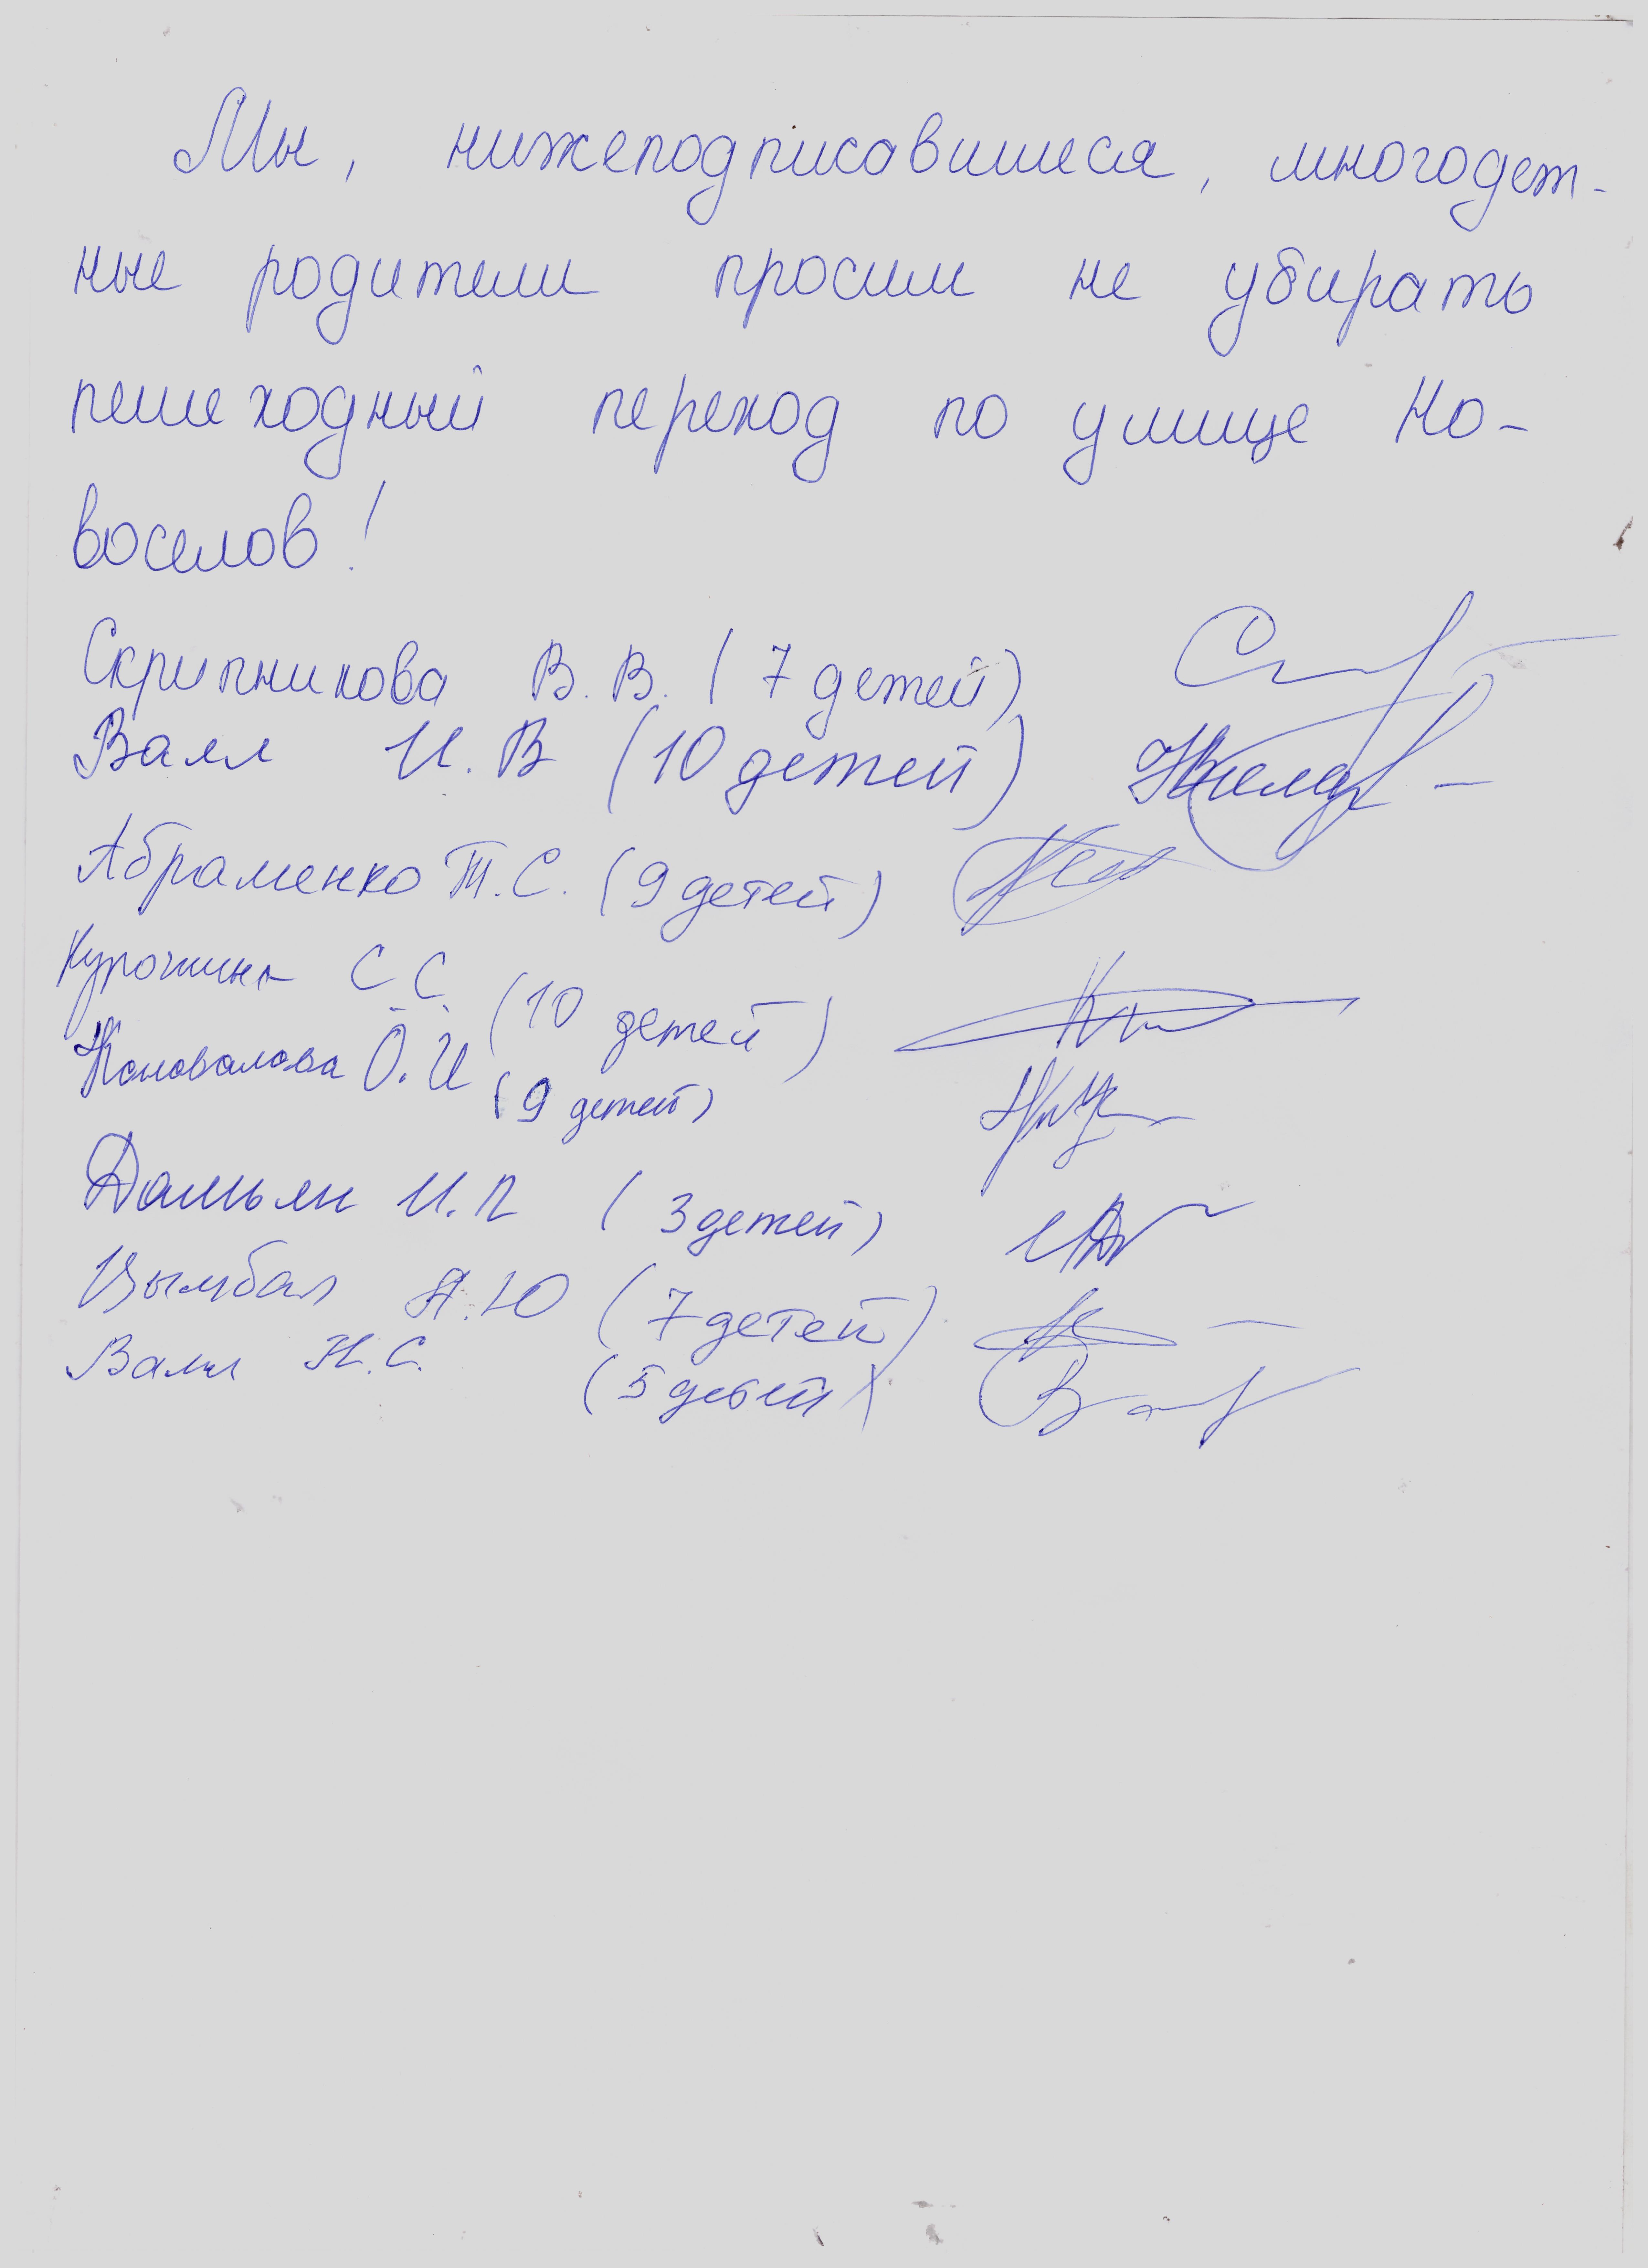 Мы, нижеподписавшиеся, многодет-
ные родители просим не убирать
пешеходный переход по улице Но-
воселов!
Скрипникова В.В. (7 детей)
Валл И.В (10 детей)
Абраменко Т.С. (9 детей)
Курочкина С.С. (10 детей)
Коновалова О.И (9 детей)
Дамьян И.П (3 детей)
Цымбал А.Ю (7 детей)
Валл Н.С. (5 детей)